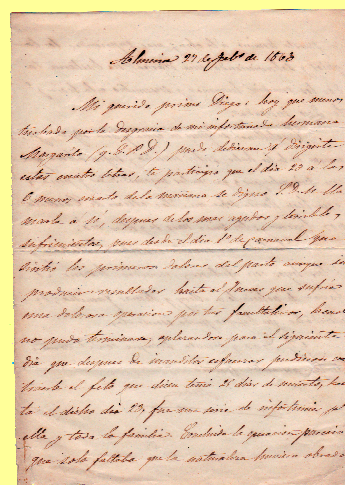 Almeria 27 de Febº de 1868
Mi querido primo Diego: hoy que menos
por la desgracia de mi infortunada hermana
Margarita (q. E. P. D.) puedo dedicarme á dirigirte
estas cuatro letras, te participo que el dia 23 a las
6 menos cuarto de la mañana se dignó S. D. M. lla
marla á sí, despues de los mas agudos y terribles
sufrimientos, pues desde el dia 1º de Carnaval que
sintió los primeros dolores del parto aunque sin
producir resultados hasta el Jueves que sufrió
una dolorosa operacion por tres facultativos, 
no pudo terminarse, aplazandola para el siguiente
dia que despues de inauditos esfuerzos pudieron 
el feto que decian tenia 21 dias de muerto, has
ta el dicho dia 23, fue una serie de infortunios pa
ella y toda la familia. Concluida la operacion parecia
que solo faltaba que la naturaleza hubiera obrado